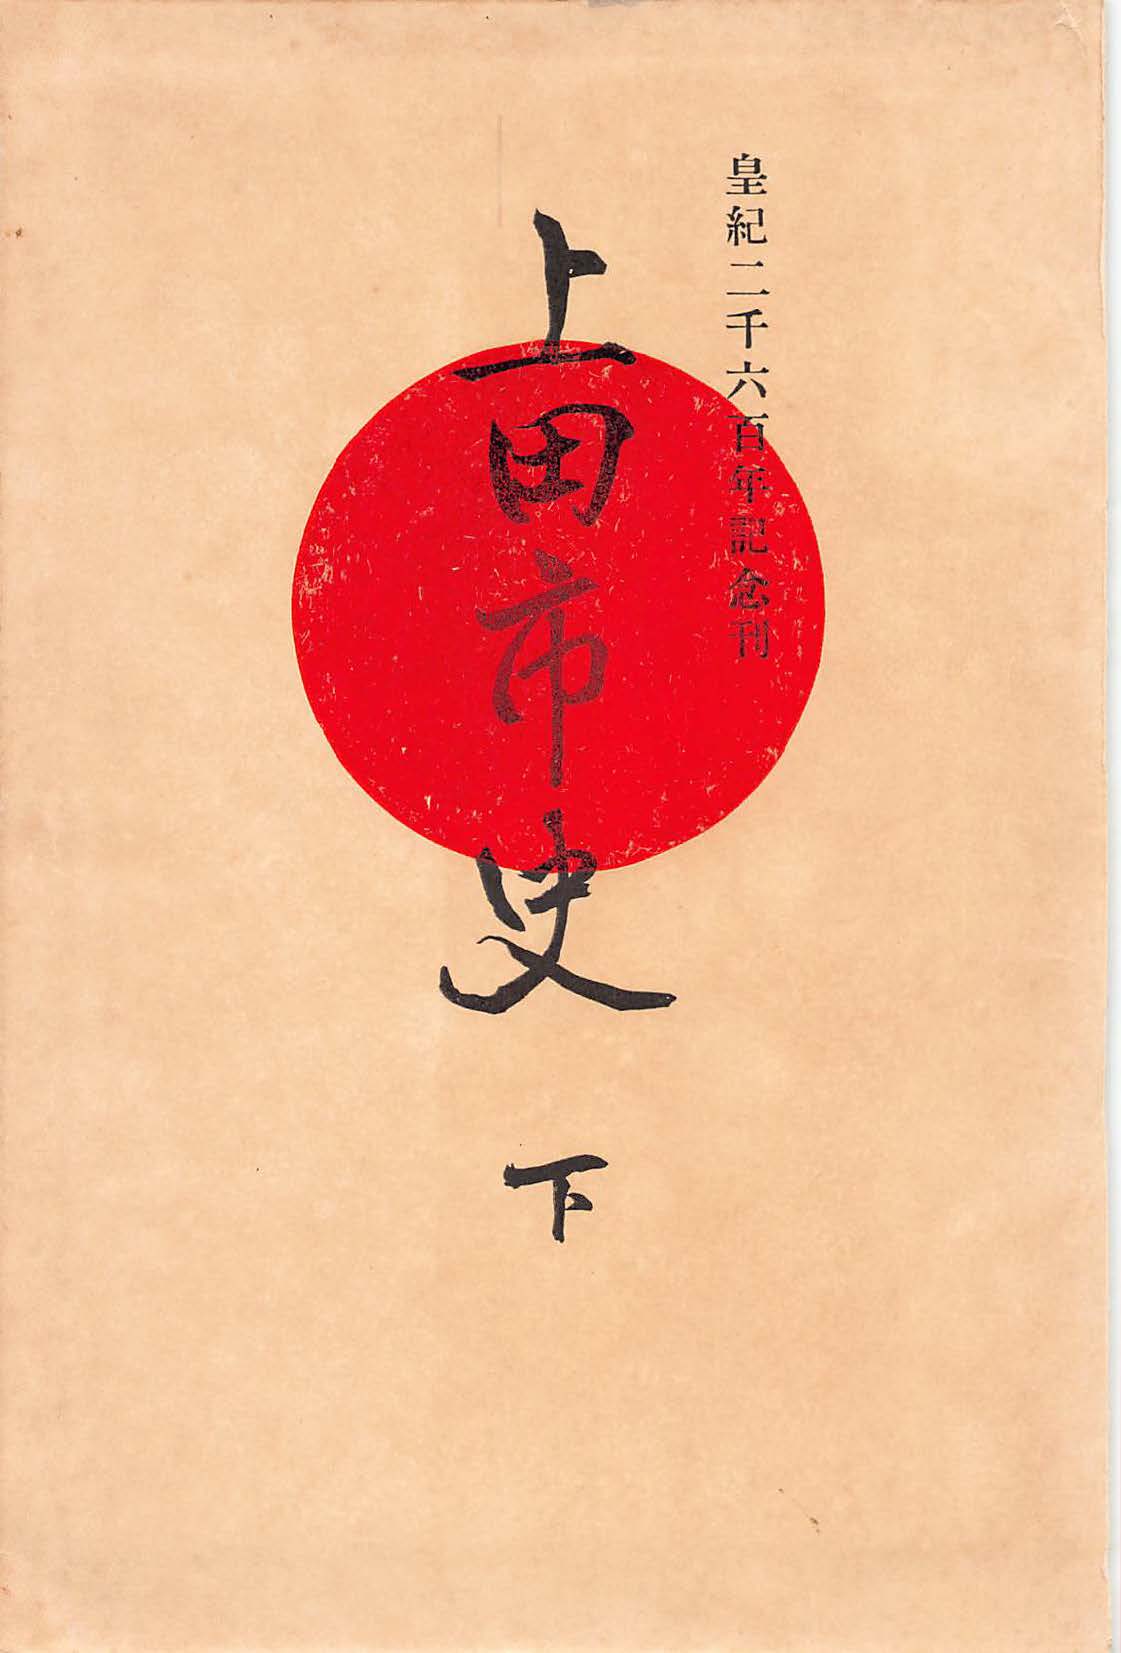 皇紀二千六百年記念刊
上田市史
下